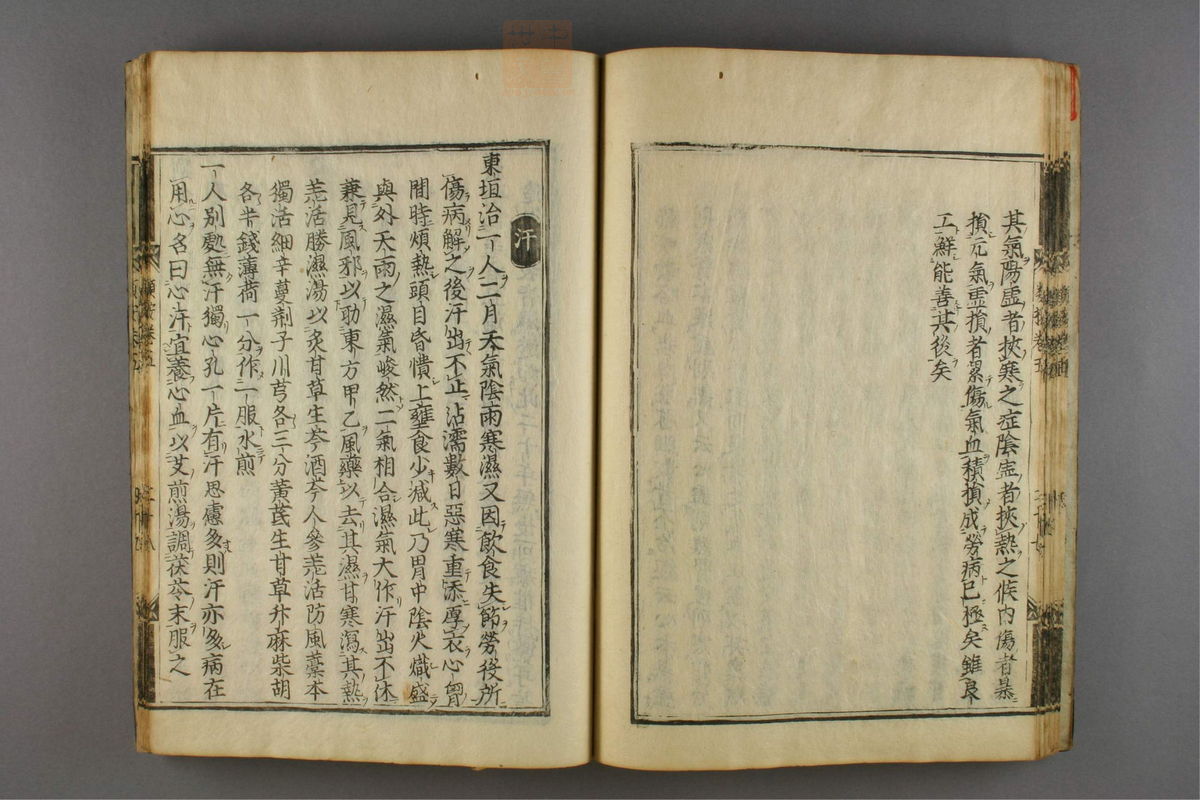 其氣陽虛者挾寒之症陰虛者挾熱之候内傷者暴
損元氣虛損者累傷氣血積損成勞病已極矣雖良
工鮮能善其後矣
汗
東垣治一人二月天氣陰雨寒濕又因飲食失節勞役所
傷病解之後汗出不止沾濡數日惡寒重添厚衣心胷
間時煩熱頭目昏憒上壅食少減此乃胃中陰火熾盛
與外天雨之濕氣峻然二氣相合濕氣大作汗出不休
兼見風邪以助東方甲乙風藥以去其濕甘寒瀉其熱
羌活勝濕湯以炙甘草生芩酒芩人參羌活防風藁本
獨活細辛蔓荆子川芎各三分黃芪生甘草升麻柴胡
各半錢薄荷一分作一服水煎
一人別處無汗獨心孔一片有汗思慮多則汗亦多病在
用心名曰心汗宜養心血以艾煎湯調茯苓末服之